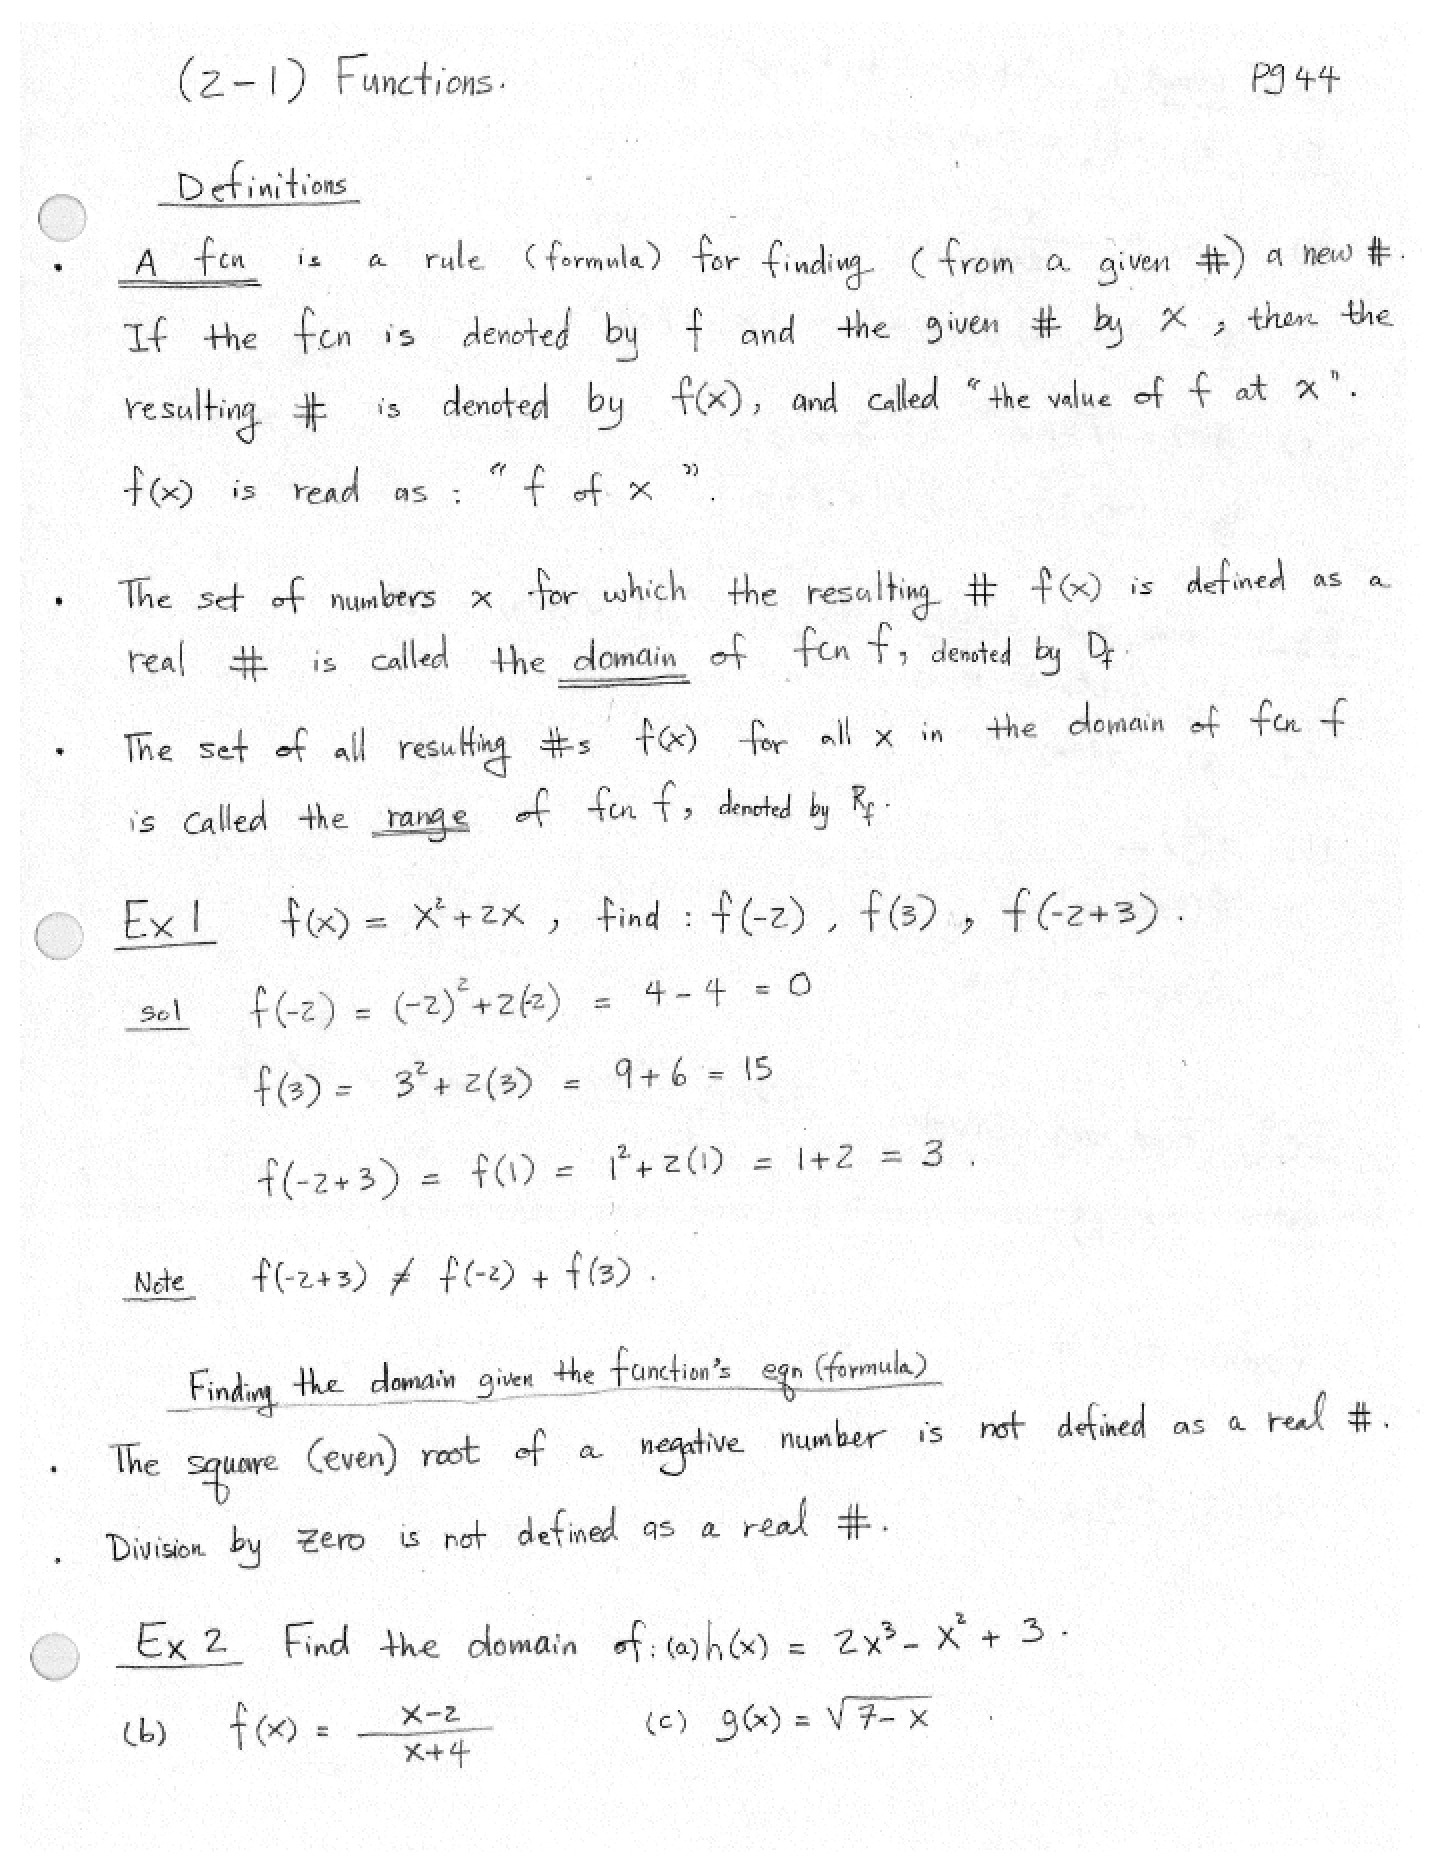 (2-1) Functions. Pg 44
Definitions
• A fcn is a rule (formula) for finding (from a given #) a new #.
If the fcn is denoted by f and the given # by x, then the
resulting # is denoted by f(x), and called "the value of f at x".
f(x) is read as : "f of x".
• The set of numbers x for which the resulting # f(x) is defined as a
real # is called the domain of fcn f, denoted by D_f.
• The set of all resulting #s f(x) for all x in the domain of fcn f
is called the range of fcn f, denoted by R_f.
Ex 1 f(x) = x² + 2x , find : f(-2) , f(3) , f(-2+3) .
sol f(-2) = (-2)² + 2(-2) = 4 - 4 = 0
f(3) = 3² + 2(3) = 9 + 6 = 15
f(-2+3) = f(1) = 1² + 2(1) = 1+2 = 3 .
Note f(-2+3) ≠ f(-2) + f(3) .
Finding the domain given the function's eqn (formula)
• The square (even) root of a negative number is not defined as a real #.
• Division by zero is not defined as a real #.
Ex 2 Find the domain of: (a) h(x) = 2x³ - x² + 3 .
(b) f(x) = (x-2)/(x+4) (c) g(x) = √(7-x) .